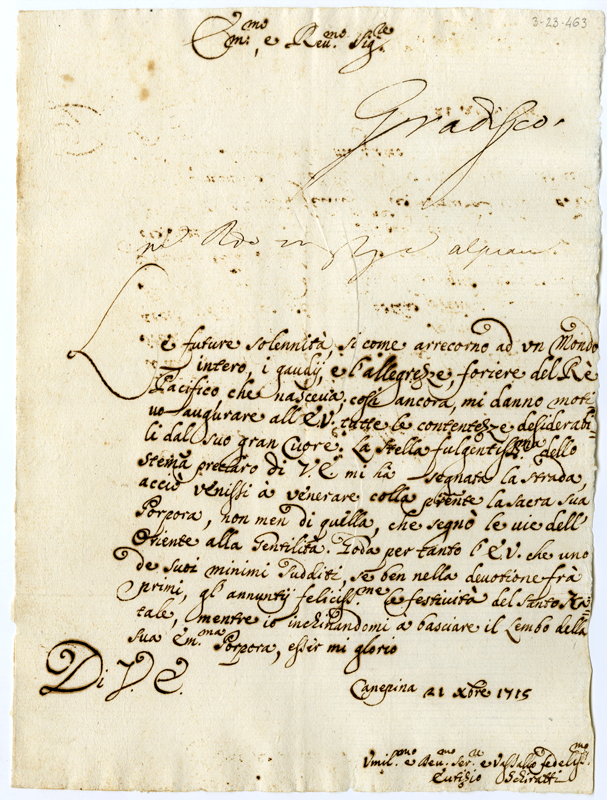 3-23-463
Em.mo, e Reu.mo Sig.re
Gradisco.
Le future solennità, si come arrecorno ad vn Mondo
intero, i gaudij, e l'allegrezze, foriere del Rè
Pacifico, che nasceua; così ancora, mi danno moti
uo augurare all'E.V. tutte le contentezze desiderabi-
li dal suo gran Cuore. La Stella fulgentiss.ma dello
stema preclaro di V.E. mi hà segnata la strada,
acciò venissi à venerare colla p̃sente la sacra sua
Porpora, non men di quella, che segnò le vie dell'
Oriente alla Gentilità. Goda per tanto l'E.V. che uno
de suoi minimi Sudditi, se ben nella deuotione frà
primi, gl'annuntij feliciss.me le festiuità del Santo Na
tale, mentre io inchinandomi a basciare il Lembo della
sua Em.ma Porpora, esser mi glorio
Di V. E.
Canepina 21 Xbre 1715
Vmil.mo e Deu.mo Ser.re e Vassallo fedeliss.mo
Eutizio Schiratti